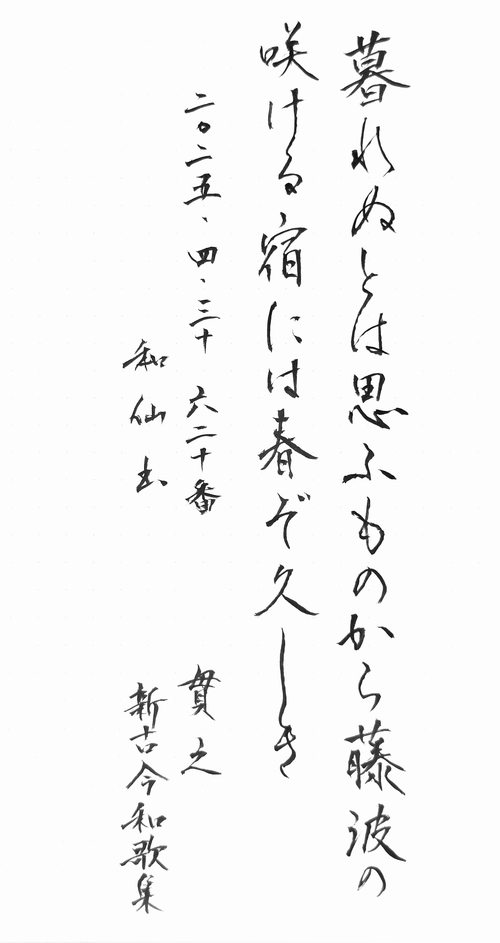 暮れぬとは思ふものから藤波の
咲ける宿には春ぞ久しき
二〇二五、四、三十 六二十番
貫之
和仙書
新古今和歌集